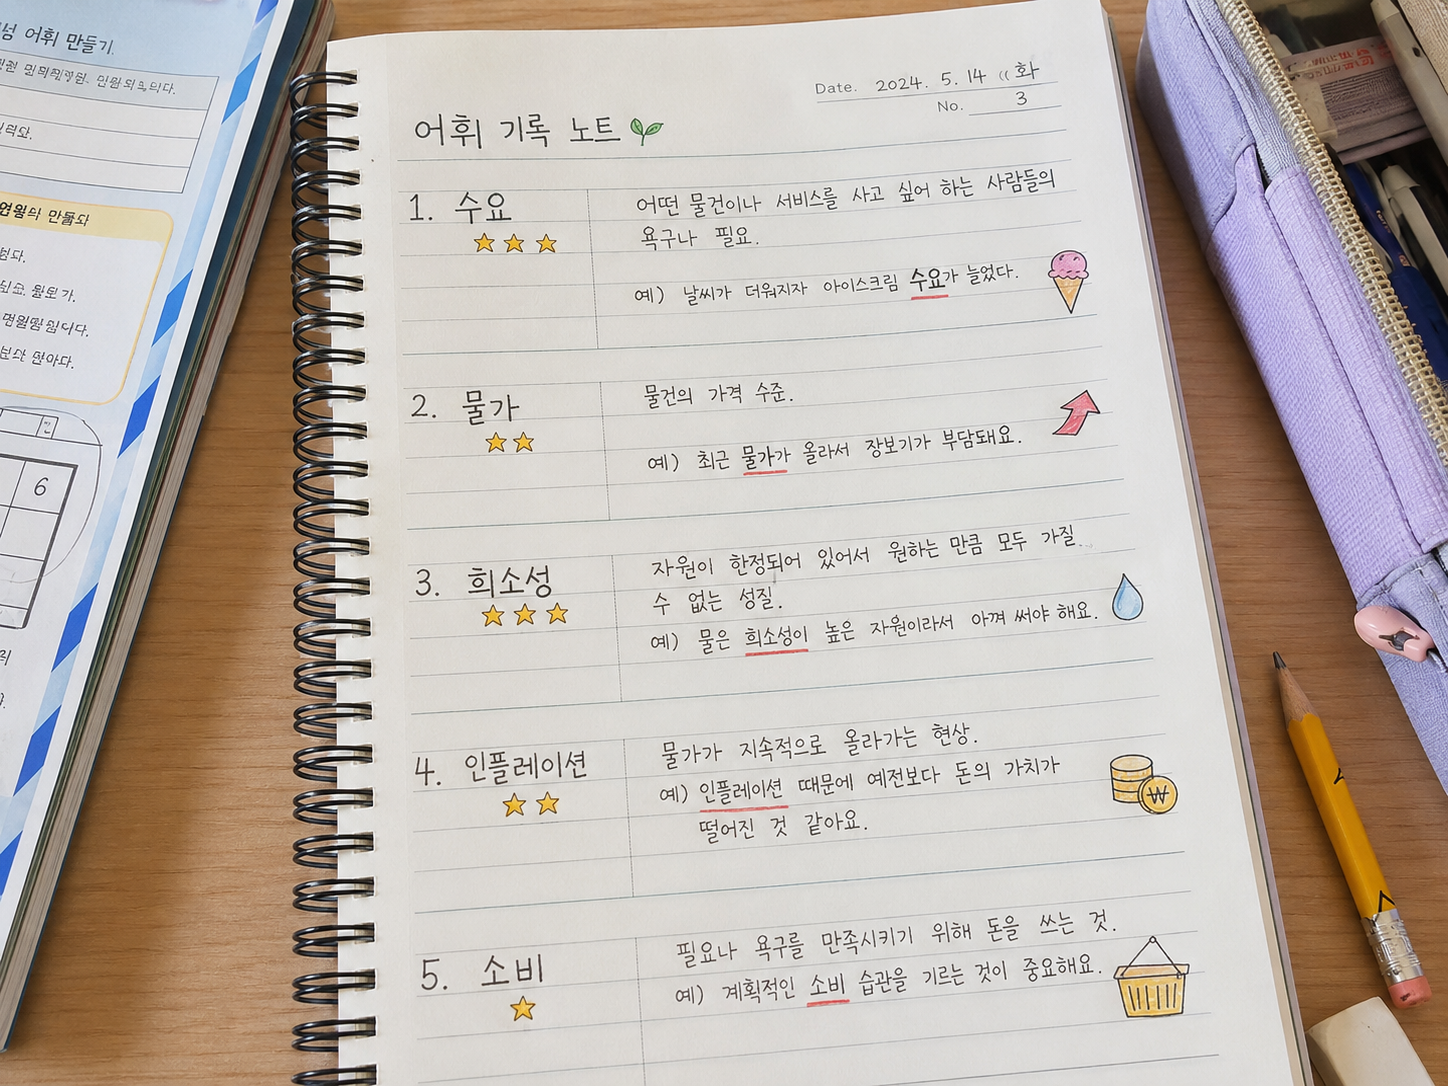 어휘 만들기.
6
Date. 2024. 5. 14 ((화
No. 3
어휘 기록 노트
1. 수요
어떤 물건이나 서비스를 사고 싶어 하는 사람들의
욕구나 필요.
예) 날씨가 더워지자 아이스크림 수요가 늘었다.
2. 물가
물건의 가격 수준.
예) 최근 물가가 올라서 장보기가 부담돼요.
3. 희소성
자원이 한정되어 있어서 원하는 만큼 모두 가질
수 없는 성질.
예) 물은 희소성이 높은 자원이라서 아껴 써야 해요.
4. 인플레이션
물가가 지속적으로 올라가는 현상.
예) 인플레이션 때문에 예전보다 돈의 가치가
떨어진 것 같아요.
₩
5. 소비
필요나 욕구를 만족시키기 위해 돈을 쓰는 것.
예) 계획적인 소비 습관을 기르는 것이 중요해요.